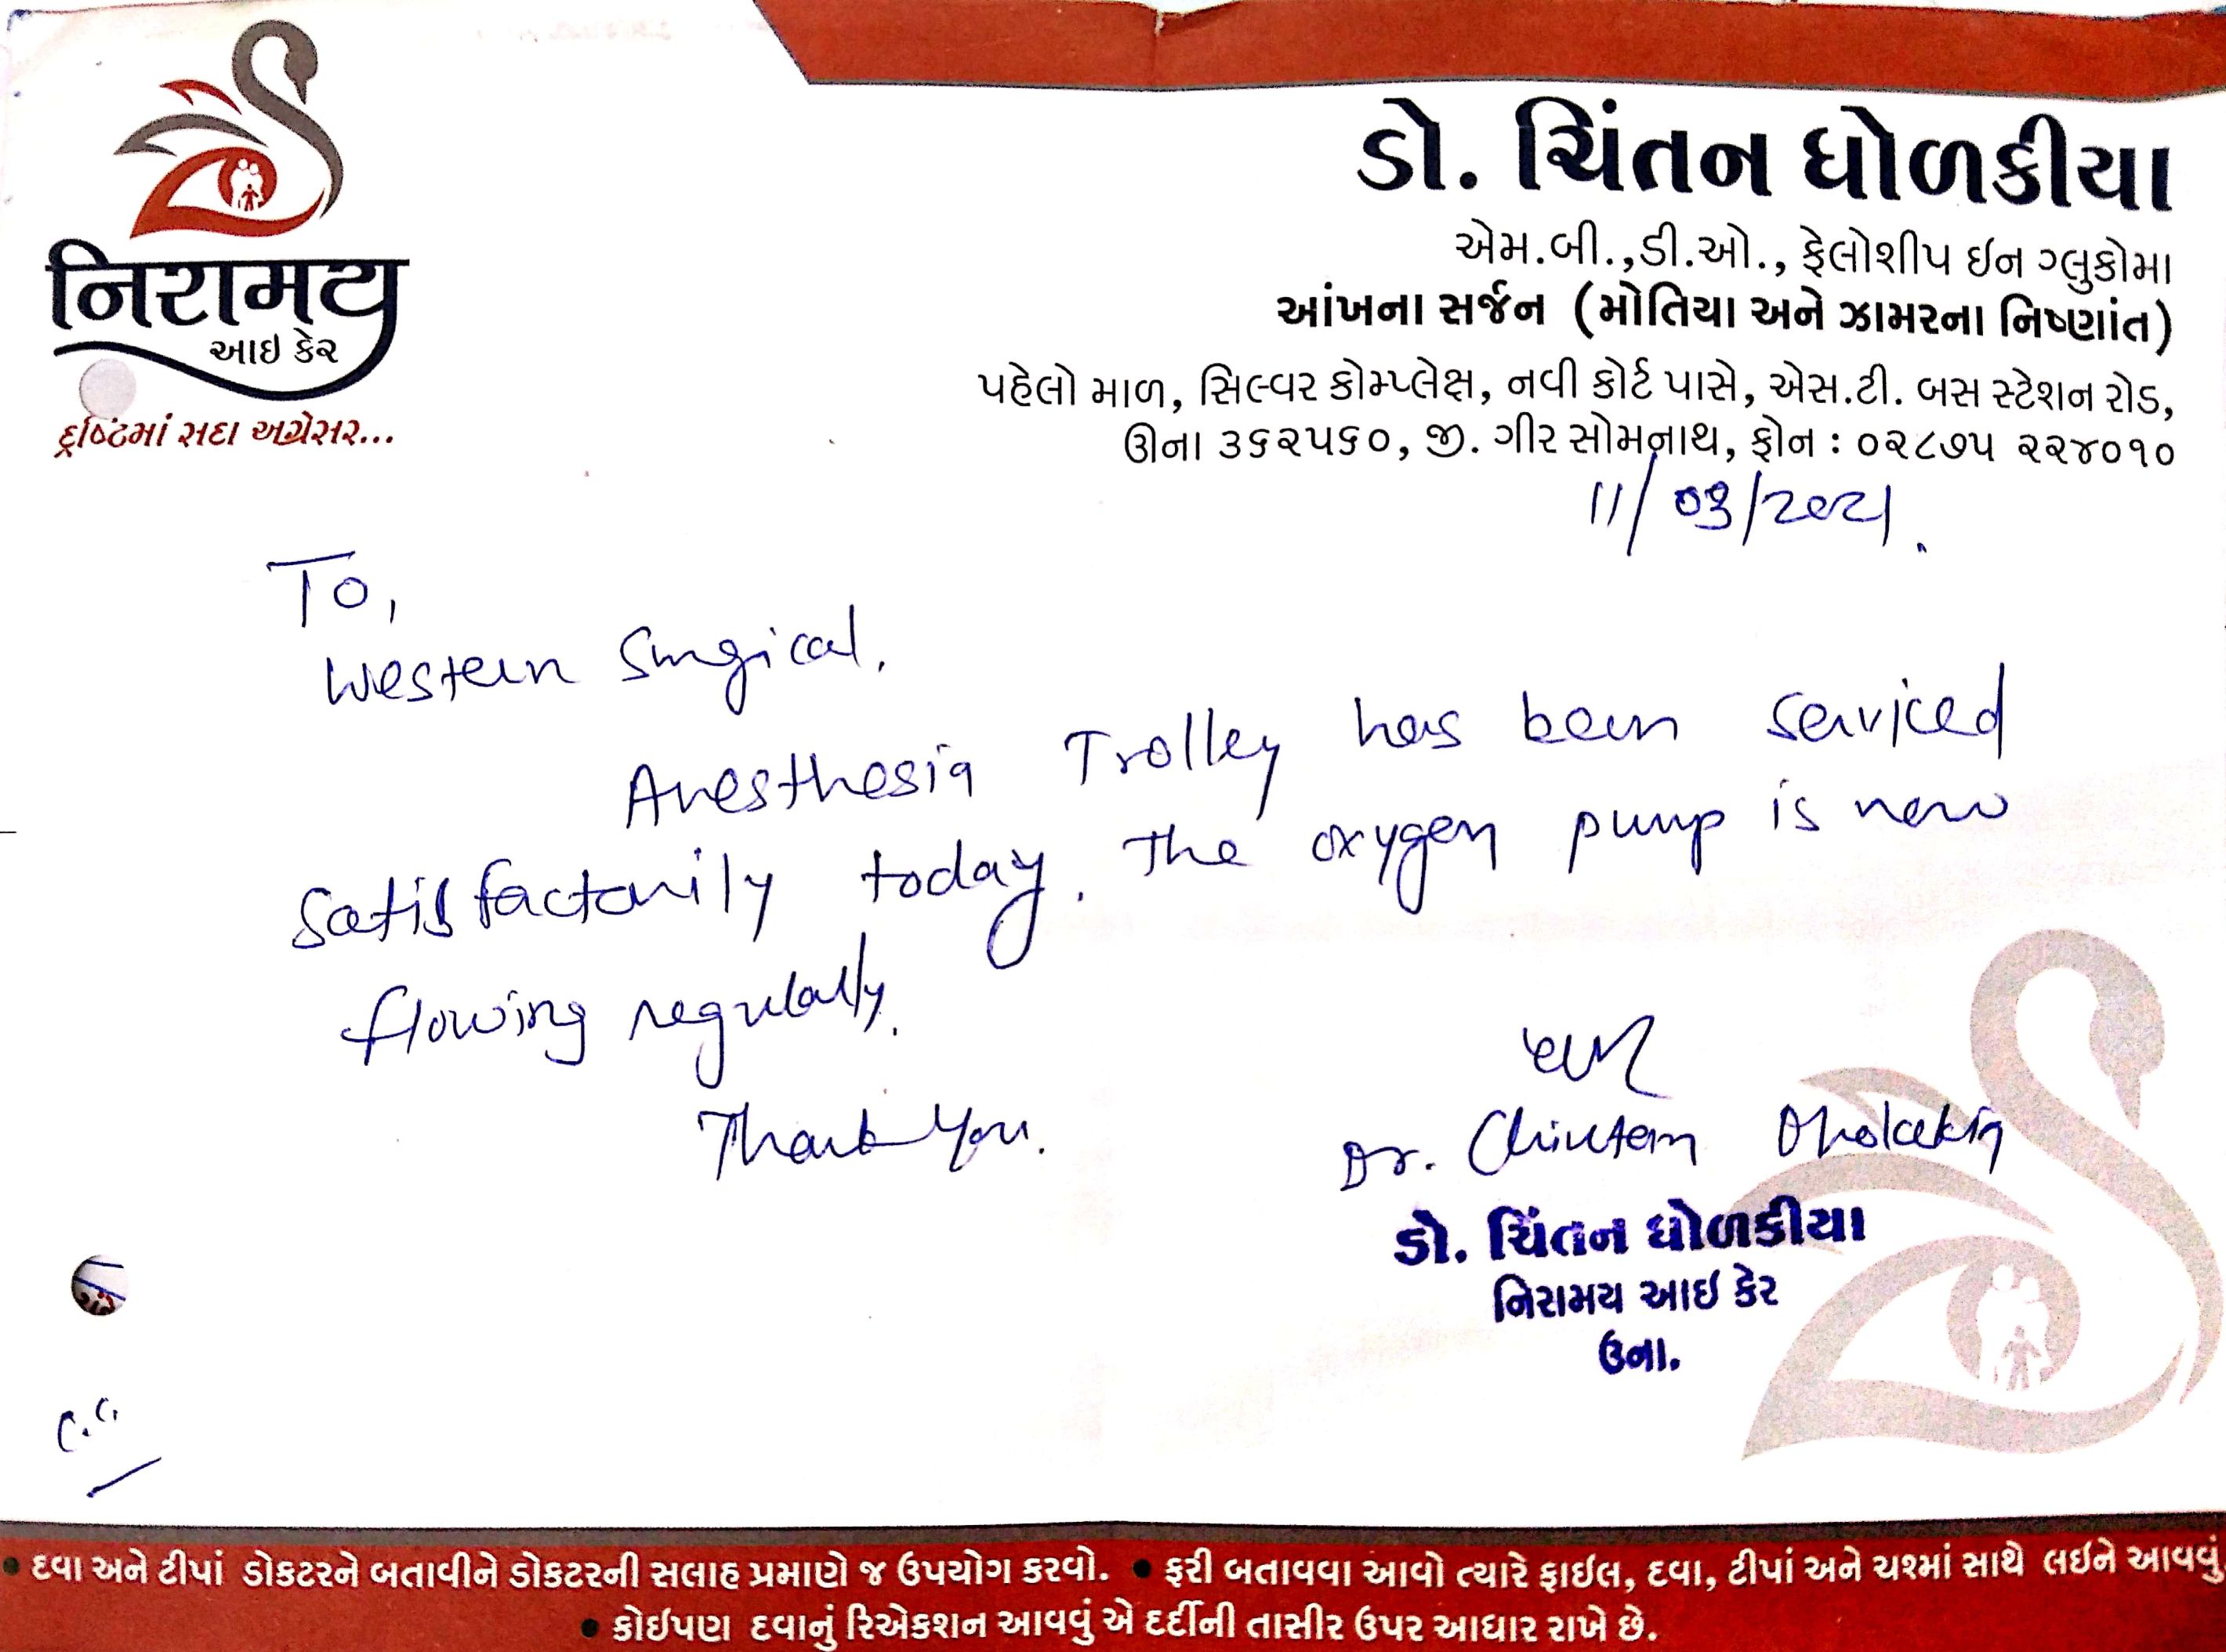 નિરામય
આઇ કેર
દ્રષ્ટિમાં સદા અગ્રેસર...
ડો. ચિંતન ધોળકીયા
એમ.બી.,ડી.ઓ., ફેલોશીપ ઈન ગ્લુકોમા
આંખના સર્જન (મોતિયા અને ઝામરના નિષ્ણાંત)
પહેલો માળ, સિલ્વર કોમ્પ્લેક્ષ, નવી કોર્ટ પાસે, એસ.ટી. બસ સ્ટેશન રોડ,
ઊના ૩૬૨૫૬૦, જી. ગીર સોમનાથ, ફોન : ૦૨૮૭૫ ૨૨૪૦૧૦
11/03/2021.
To,
Western Surgical.
Anesthesia Trolley has been serviced
satisfactorily today. The oxygen pump is now
flowing regularly.
Thank You.
Dr. Chintan Dholakia
ડો. ચિંતન ધોળકીયા
નિરામય આઇ કેર
ઉના.
C.C.
• દવા અને ટીપાં ડોકટરને બતાવીને ડોકટરની સલાહ પ્રમાણે જ ઉપયોગ કરવો. • ફરી બતાવવા આવો ત્યારે ફાઈલ, દવા, ટીપાં અને ચશ્માં સાથે લઇને આવવું
• કોઈપણ દવાનું રિએકશન આવવું એ દર્દીની તાસીર ઉપર આધાર રાખે છે.